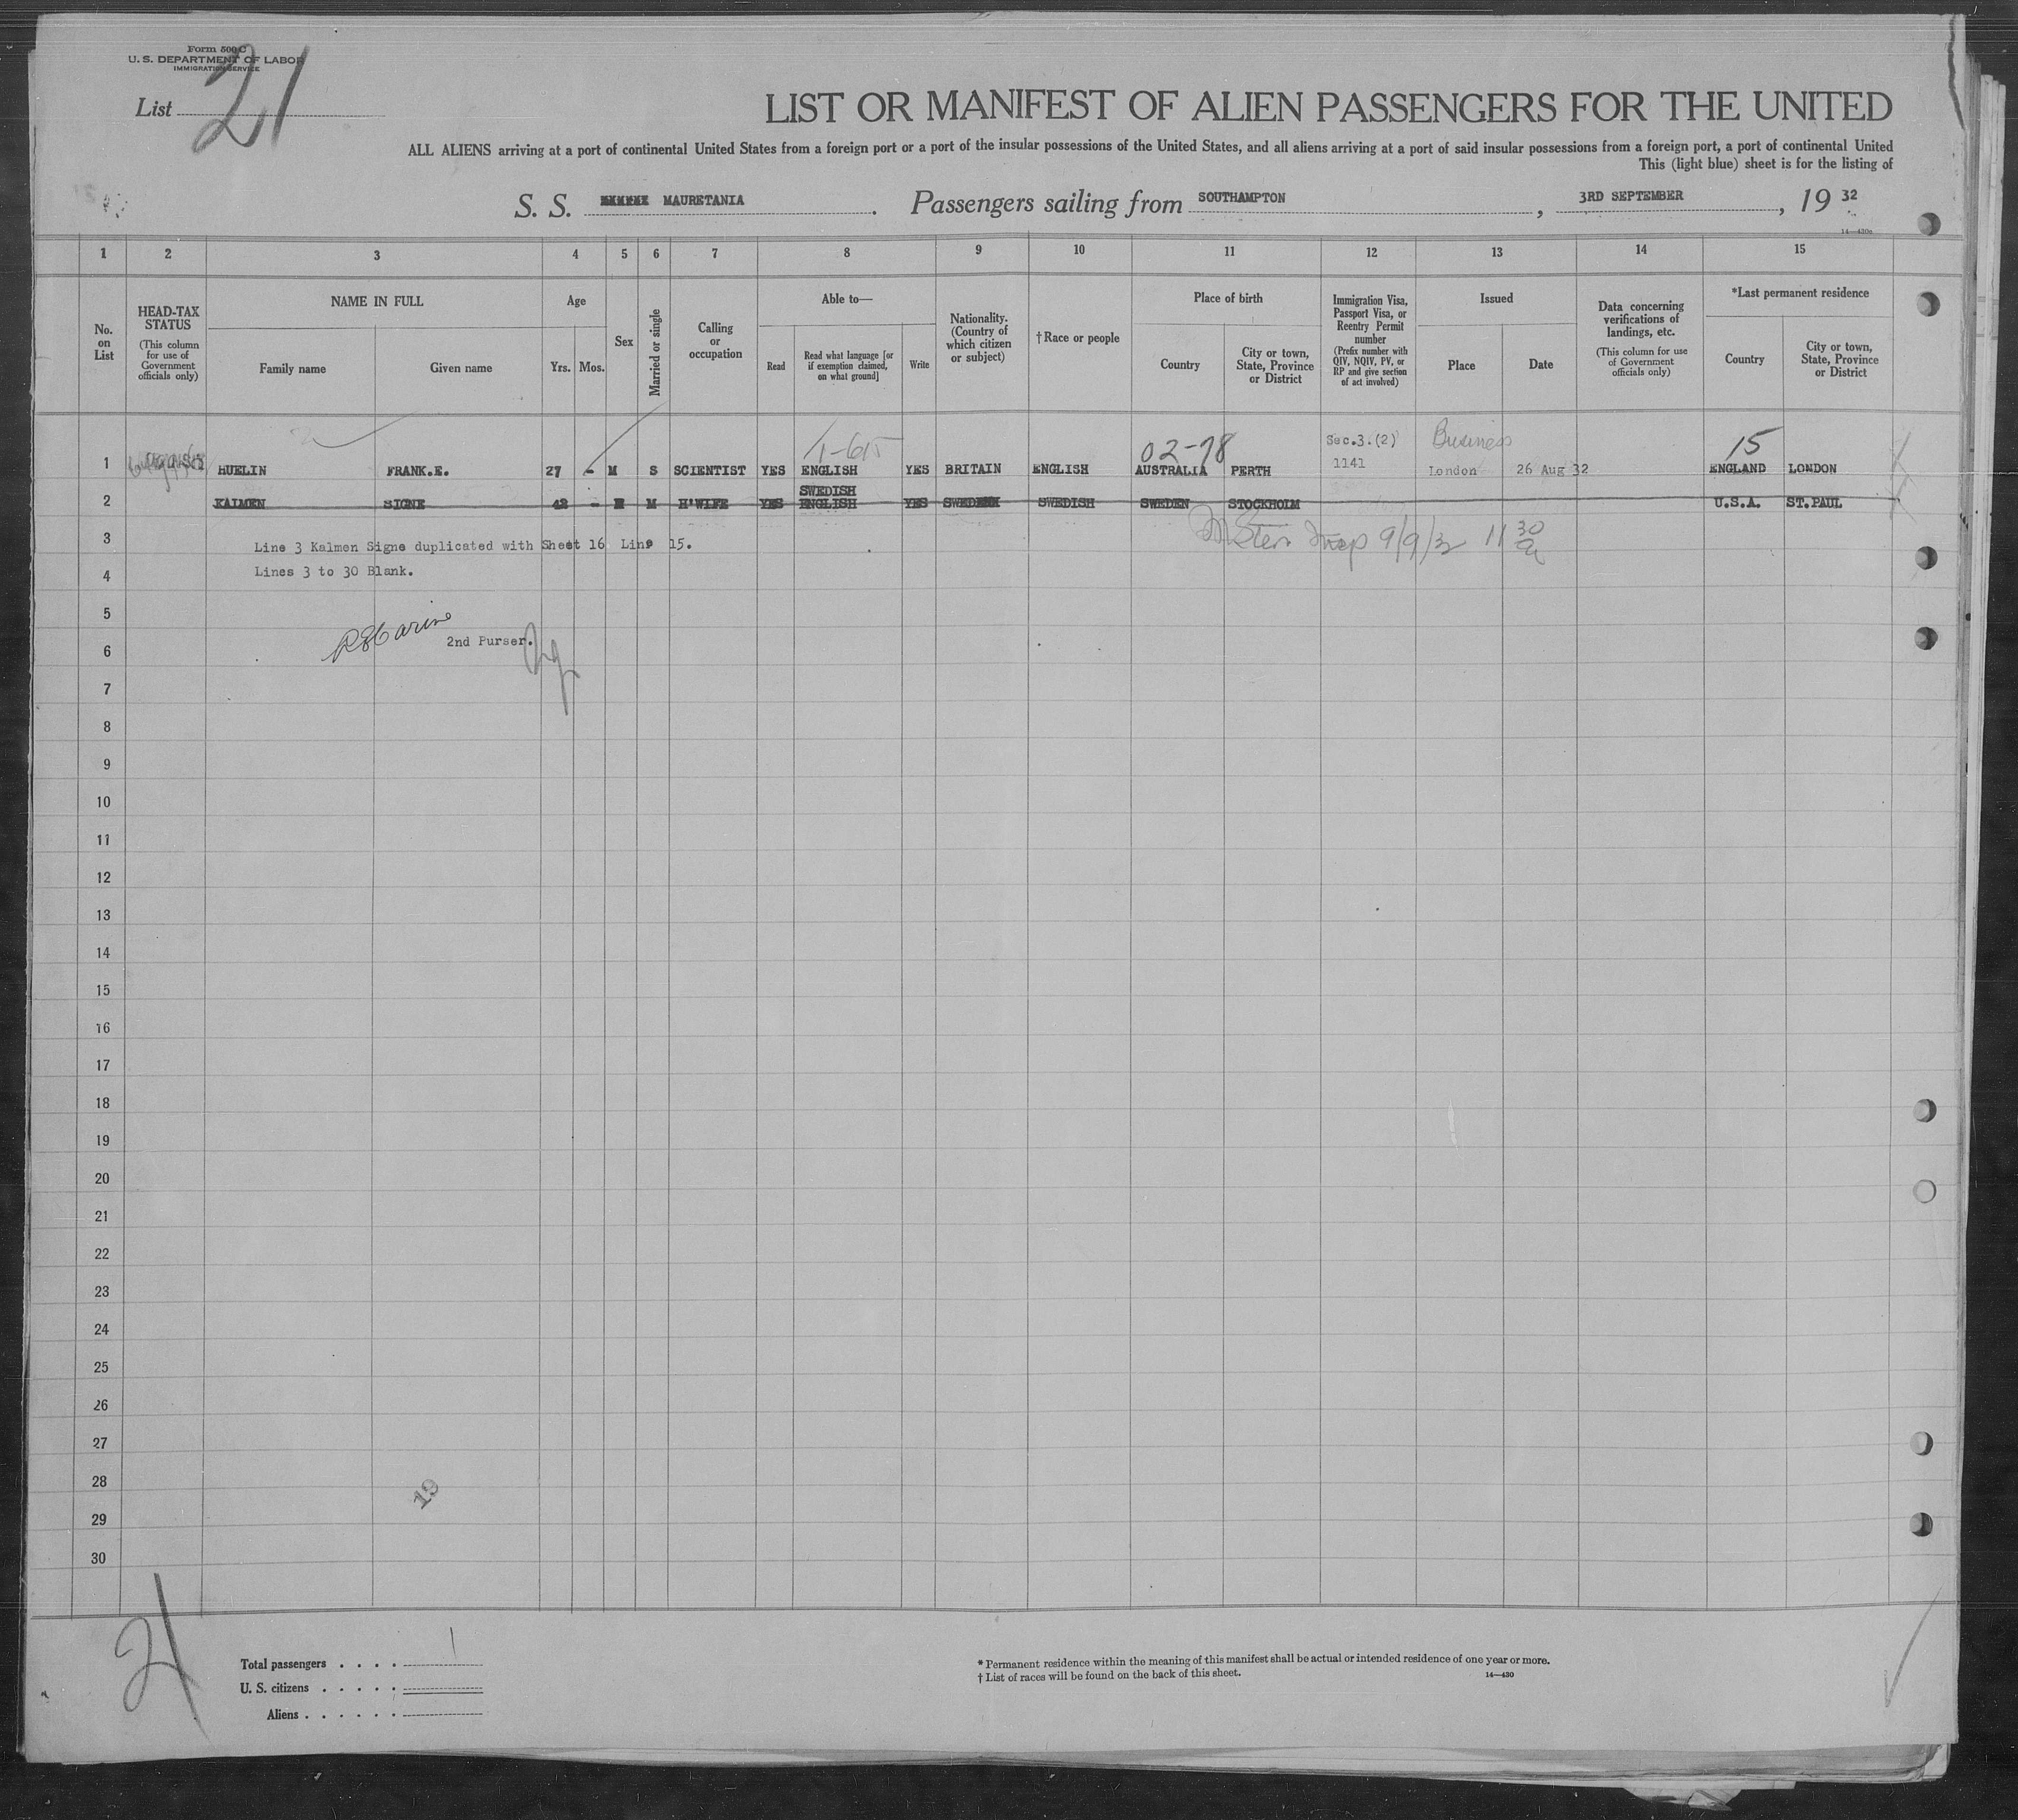 Form 500 C
U. S. DEPARTMENT OF LABOR
IMMIGRATION SERVICE
List 21
LIST OR MANIFEST OF ALIEN PASSENGERS FOR THE UNITED
ALL ALIENS arriving at a port of continental United States from a foreign port or a port of the insular possessions of the United States, and all aliens arriving at a port of said insular possessions from a foreign port, a port of continental United
This (light blue) sheet is for the listing of
S. S. MAURETANIA. Passengers sailing from SOUTHAMPTON, 3RD SEPTEMBER, 19 32
14—430a
1 2 3 4 5 6 7 8 9 10 11 12 13 14 15
No. on List
HEAD-TAX STATUS (This column for use of Government officials only)
NAME IN FULL
Family name Given name
Age
Yrs. Mos.
Sex
Married or single
Calling or occupation
Able to—
Read Read what language [or if exemption claimed, on what ground] Write
Nationality. (Country of which citizen or subject)
†Race or people
Place of birth
Country City or town, State, Province or District
Immigration Visa, Passport Visa, or Reentry Permit number (Prefix number with QIV, NQIV, PV, or RP and give section of act involved)
Issued
Place Date
Data concerning verifications of landings, etc. (This column for use of Government officials only)
*Last permanent residence
Country City or town, State, Province or District
02-78 Sec.3.(2) Business 15
1 HUELIN FRANK.E. 27 - M S SCIENTIST YES ENGLISH YES BRITAIN ENGLISH AUSTRALIA PERTH 1141 London 26 Aug 32 ENGLAND LONDON
SWEDISH
2 KALMEN SIGNE 42 - F M H'WIFE YES ENGLISH YES SWEDEN SWEDISH SWEDEN STOCKHOLM U.S.A. ST.PAUL
3 Line 3 Kalmen Signe duplicated with Sheet 16 Line 15. Insp 9/9/32 11 30
4 Lines 3 to 30 Blank.
5
6 2nd Purser.
7
8
9
10
11
12
13
14
15
16
17
18
19
20
21
22
23
24
25
26
27
28
19
29
30
21
Total passengers . . . . 1
U. S. citizens . . . . .
Aliens . . . . . .
* Permanent residence within the meaning of this manifest shall be actual or intended residence of one year or more.
† List of races will be found on the back of this sheet.
14—430